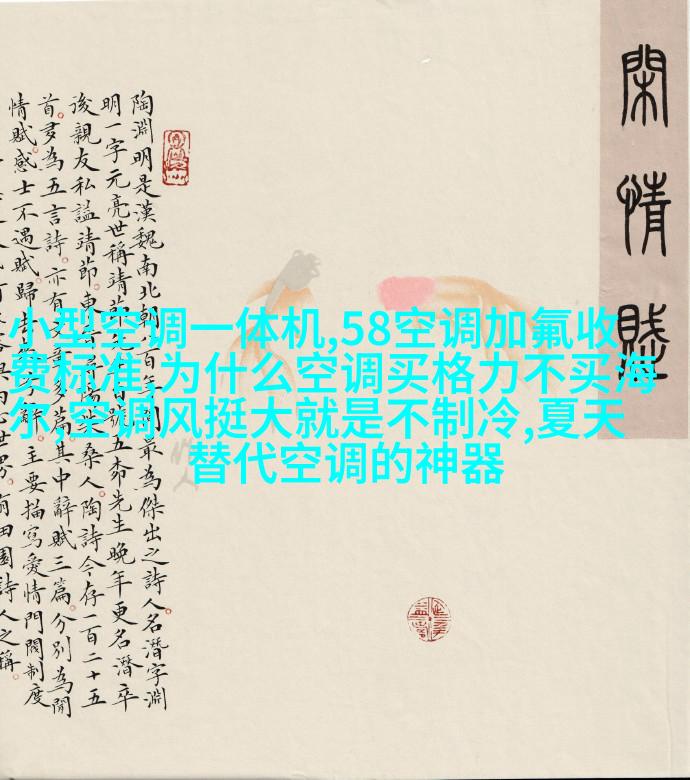 閑情賦
陶淵明是漢魏南北朝百年間最為傑出之詩人名潛字淵
明一字元亮世稱靖節號五柳先生晚年更名潛卒
後親友私謚靖節東晉潯陽柴桑人陶詩今存一百二十五
首多為五言詩亦有文章多篇其中辭賦三篇分別為閒
情賦感士不遇賦歸去來兮辭主要描寫愛情門閥制度
田園詩人之稱
小型空调一体机,58空调加氟收
费标准,为什么空调买格力不买海
尔,空调风挺大就是不制冷,夏天
替代空调的神器